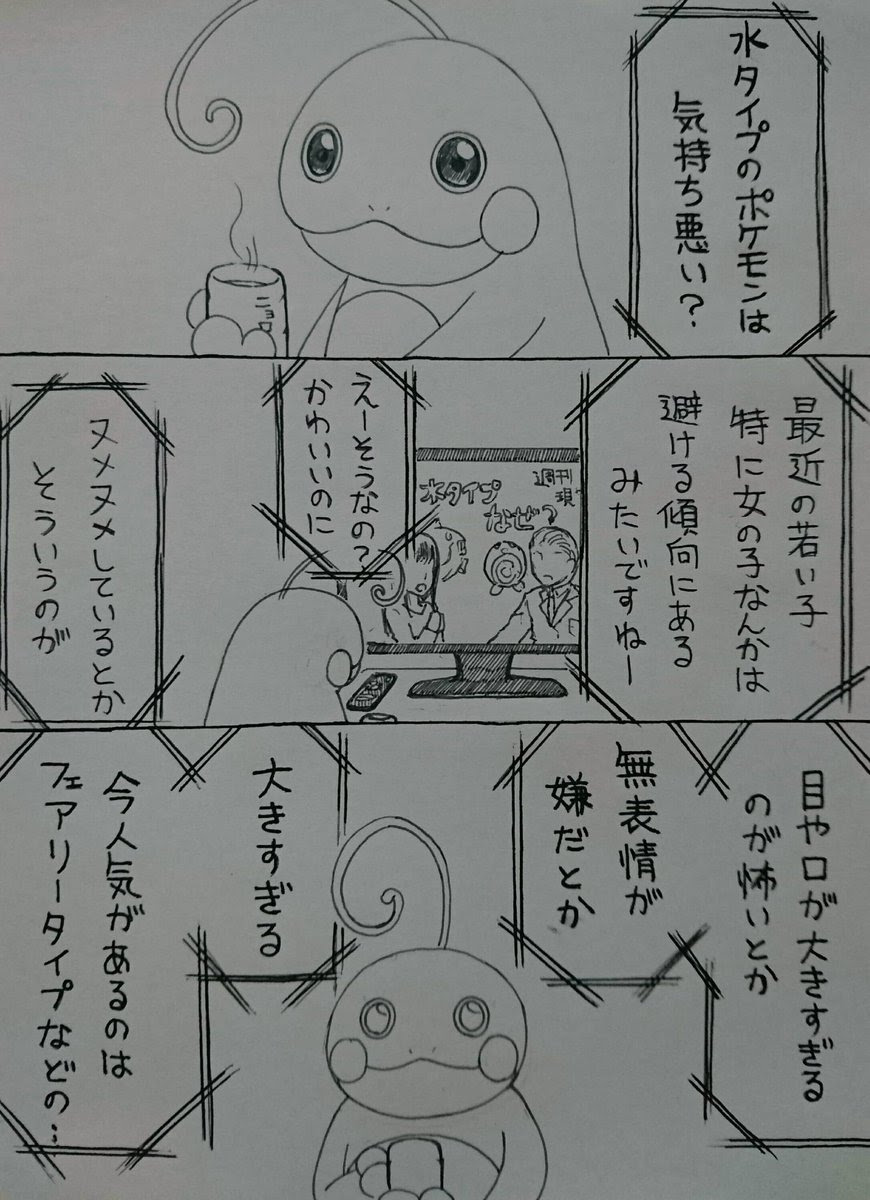 水タイプのポケモンは
気持ち悪い?
ニョロ
最近の若い子
特に女の子なんかは
避ける傾向にある
みたいですねー
週刊
現
水タイプ
なぜ?
えーそうなの?
かわいいのに
ヌメヌメしているとか
そういうのが
目や口が大きすぎる
のが怖いとか
無表情が
嫌だとか
大きすぎる
今人気があるのは
フェアリータイプなどの…